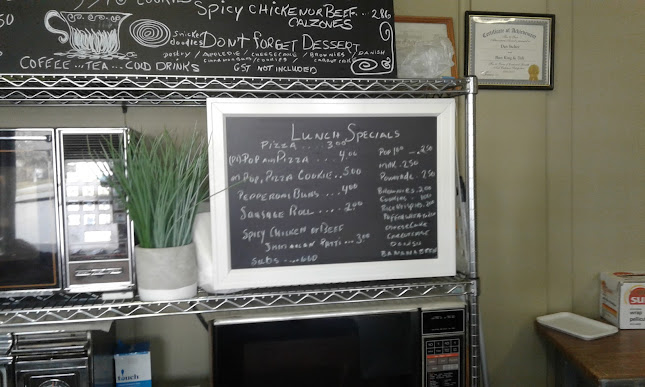 COOKIES
SPICY CHICKEN OR BEEF ... 2.86
CALZONES
Snicker
doodles
DON'T FORGET DESSERT
pastry / APPLE PIE / CHEESECAKE / BROWNIES / DANISH
cinnamon buns / cookies / CARROT CAKE
COFFEE ... TEA ... COLD DRINKS
GST NOT INCLUDED
Certificate of Achievement
LUNCH SPECIALS
PIZZA .... 3.00
POP AND PIZZA ... 4.00
POP, PIZZA COOKIE .. 5.00
PEPPERONI BUNS ... 4.00
SAUSAGE ROLL ... 2.00
SPICY CHICKEN OR BEEF
JAMAICAN PATTI ... 3.00
SUBS ....
POP 1.00 - .. 2.50
MILK . 2.50
POWERADE . 2.50
BROWNIES . 2.00
COOKINS - 1.00
RICE KRISPIES . 2.00
CHEESECAKE
CARROTCAKE
DANISH
SU